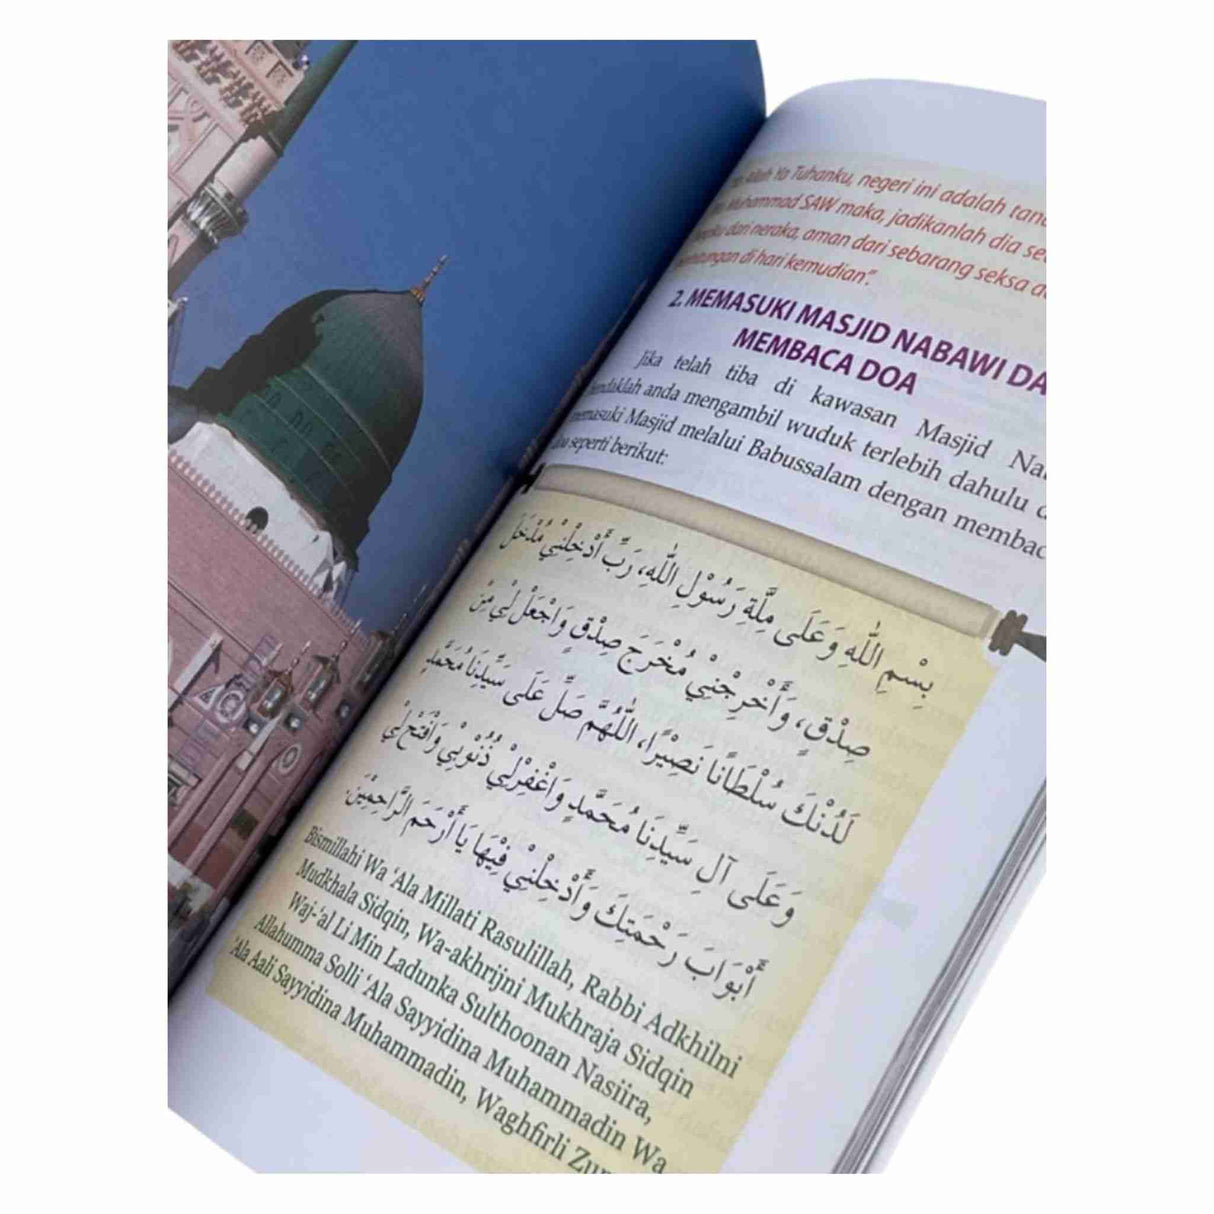 Allah Ya Tuhanku, negeri ini adalah
Muhammad SAW maka, jadikanlah dia
dari neraka, aman dari sebarang seksa
di hari kemudian".
2. MEMASUKI MASJID NABAWI
MEMBACA DOA
Jika telah tiba di kawasan Masjid
anda mengambil wuduk terlebih dahulu
memasuki Masjid melalui Babussalam dengan
seperti berikut:
بِسْمِ اللّٰهِ وَعَلَى مِلَّةِ رَسُوْلِ اللّٰهِ، رَبِّ أَدْخِلْنِيْ مُدْخَلَ
صِدْقٍ، وَأَخْرِجْنِيْ مُخْرَجَ صِدْقٍ وَاجْعَلْ لِيْ مِنْ
لَدُنْكَ سُلْطَانًا نَصِيْرًا، اللّٰهُمَّ صَلِّ عَلَى سَيِّدِنَا مُحَمَّدٍ
وَعَلَى آلِ سَيِّدِنَا مُحَمَّدٍ وَاغْفِرْلِيْ ذُنُوْبِيْ وَافْتَحْ لِيْ
أَبْوَابَ رَحْمَتِكَ وَأَدْخِلْنِيْ فِيْهَا يَا أَرْحَمَ الرَّاحِمِيْنَ.
Bismillahi Wa 'Ala Millati Rasulillah, Rabbi Adkhilni
Mudkhala Sidqin, Wa-akhrijni Mukhraja Sidqin
Waj-'al Li Min Ladunka Sulthoonan Nasiira,
Allahumma Solli 'Ala Sayyidina Muhammadin Wa
'Ala Aali Sayyidina Muhammadin, Waghfirli